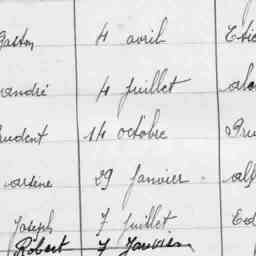 Gaston 4 avril Etie
andré 4 juillet ale
rudent 14 octobre Pru
arsène 29 Janvier alf
Joseph 7 juillet Ed
Robert 7 Janvier